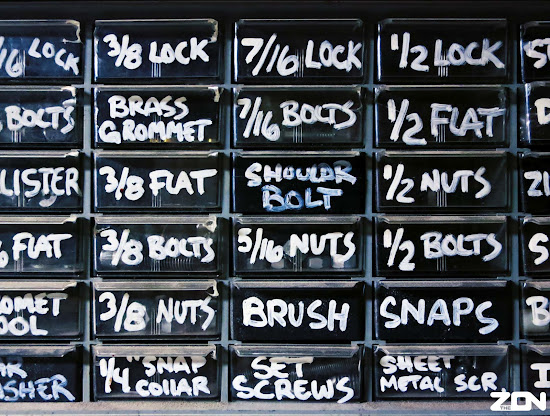 /16 LOCK
3/8 LOCK
7/16 LOCK
1/2 LOCK
BOLTS
BRASS
GROMMET
7/16 BOLTS
1/2 FLAT
LISTER
3/8 FLAT
SHOULDR
BOLT
1/2 NUTS
FLAT
3/8 BOLTS
5/16 NUTS
1/2 BOLTS
OMET
OOL
3/8 NUTS
BRUSH
SNAPS
1/4" SNAP
COLLAR
SET
SCREWS
SHEET
METAL SCR.
THE ZON